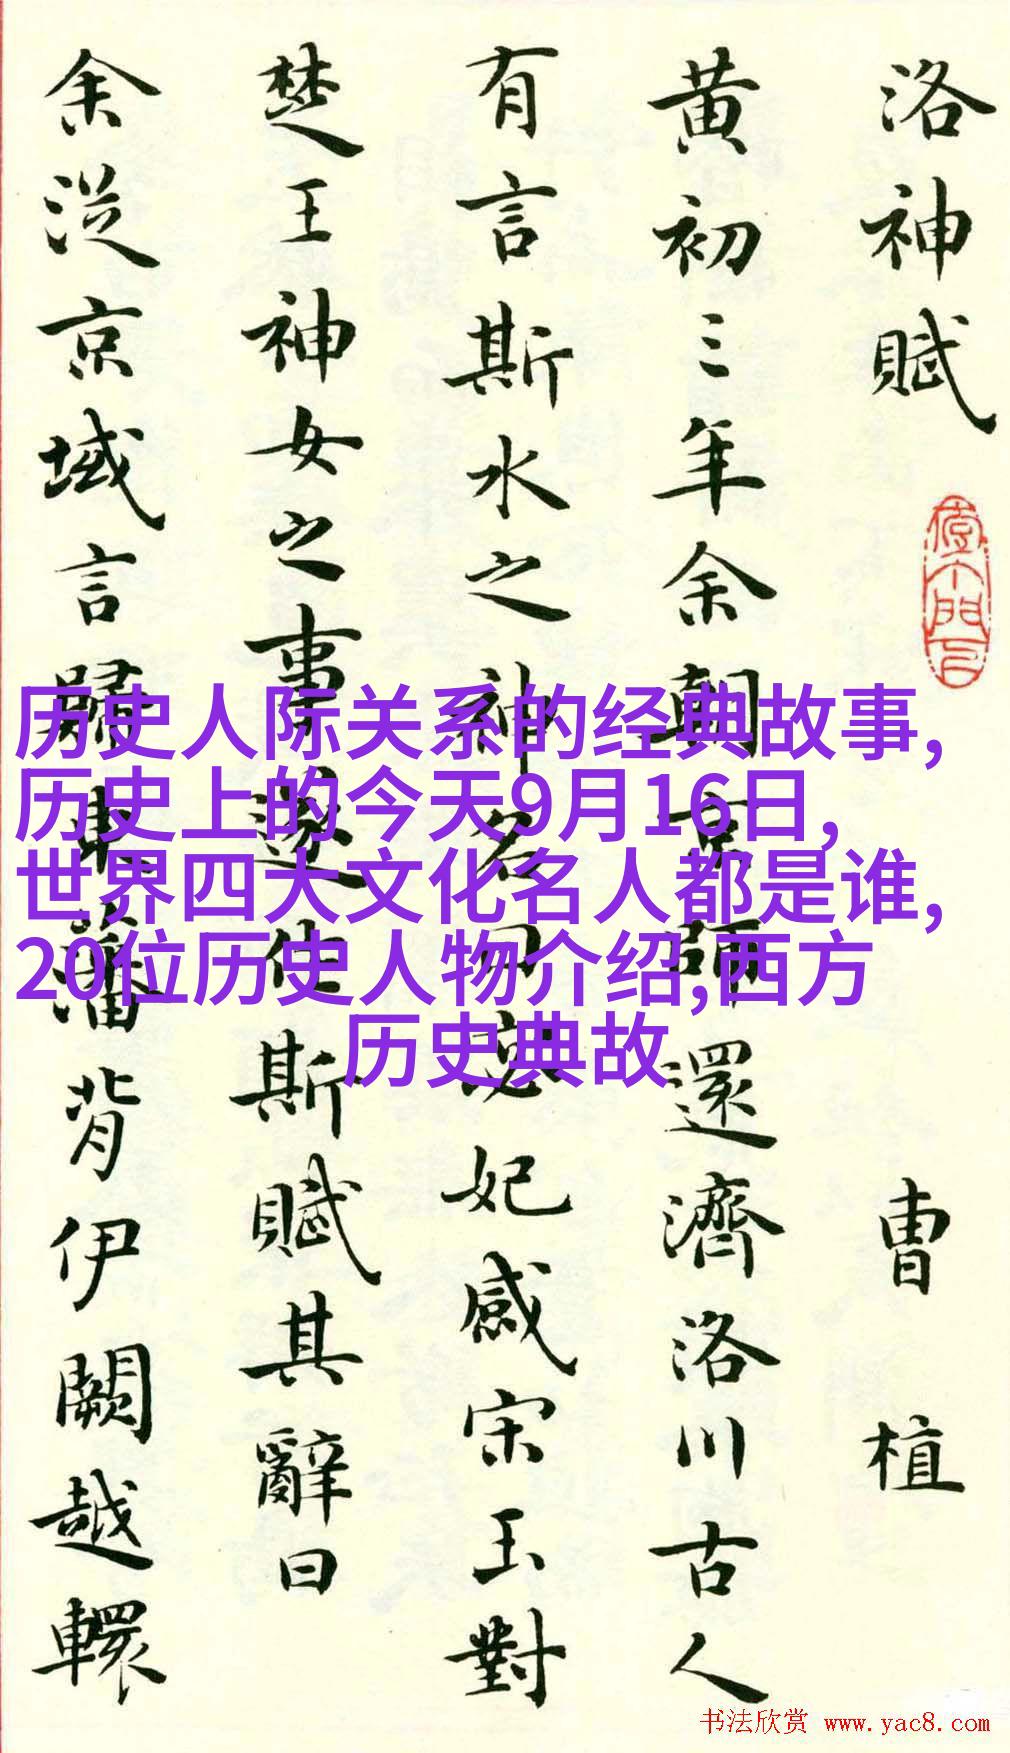 洛神賦
曹植
黄初三年余朝京師還濟洛川古人
有言斯水之神名曰宓妃感宋玉對
楚王神女之事遂作斯賦其辭曰
余従京域言歸東藩背伊闕越轘
历史人际关系的经典故事,
历史上的今天9月16日,
世界四大文化名人都是谁,
20位历史人物介绍,西方
历史典故
书法欣赏 www.yac8.com